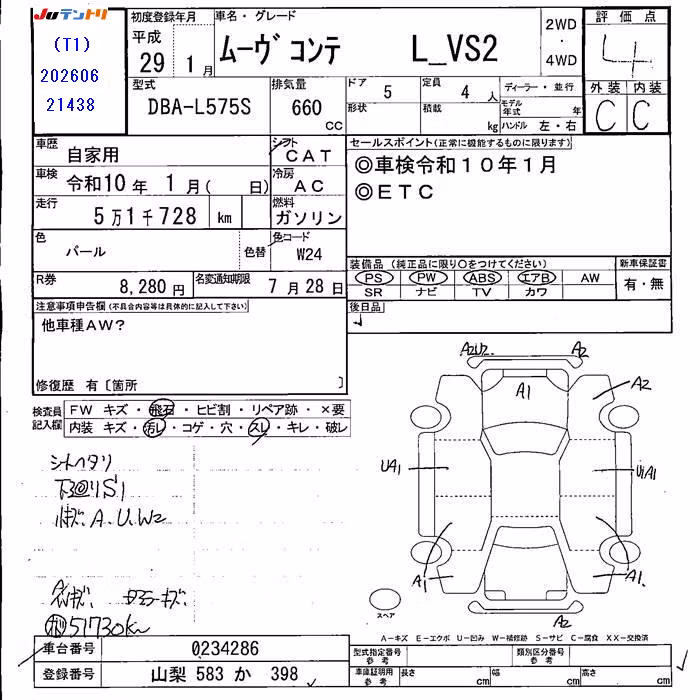 JUテントリ
(T1)
202606
21438
初度登録年月
平成
29 1月
車名・グレード
ムーヴ コンテ L_VS2
2WD
・
4WD
評価点
4
外装 内装
C C
型式
DBA-L575S
排気量
660
CC
ドア 5
形状
定員 4 人
積載 kg
ディーラー・並行
モデル年式 年
ハンドル 左・右
車歴
自家用
シフト
CAT
車検 令和10年 1月( 日)
冷房
AC
走行 5万1千728 km
燃料
ガソリン
色
パール
色替
色コード
W24
R券
8,280円
名変通知期限
7月28日
セールスポイント(正常に機能するものに限ります)
◎車検令和10年1月
◎ETC
装備品(純正品に限り○をつけてください)
PS PW ABS エアB AW
SR ナビ TV カワ
新車保証書
有・無
後日品
注意事項申告欄(不具合内容等は具体的に記入して下さい)
他車種AW?
修復歴 有〔箇所 〕
検査員記入欄
FW キズ・飛石・ヒビ割・リペア跡・×要
内装 キズ・汚レ・コゲ・穴・スレ・キレ・破レ
シートヘタリ
A.U.W2
51730km
A2U2. A2
A1 A2
UA1 U1A1
A1 A1.
A2
スペア
A-キズ E-エクボ U-凹み W-補修跡 S-サビ C-腐食 XX-交換済
車台番号 0234286
登録番号 山梨 583 か 398
型式指定番号
参考
類別区分番号
参考
車庫証明用
参考
長さ cm 幅 cm 高さ cm